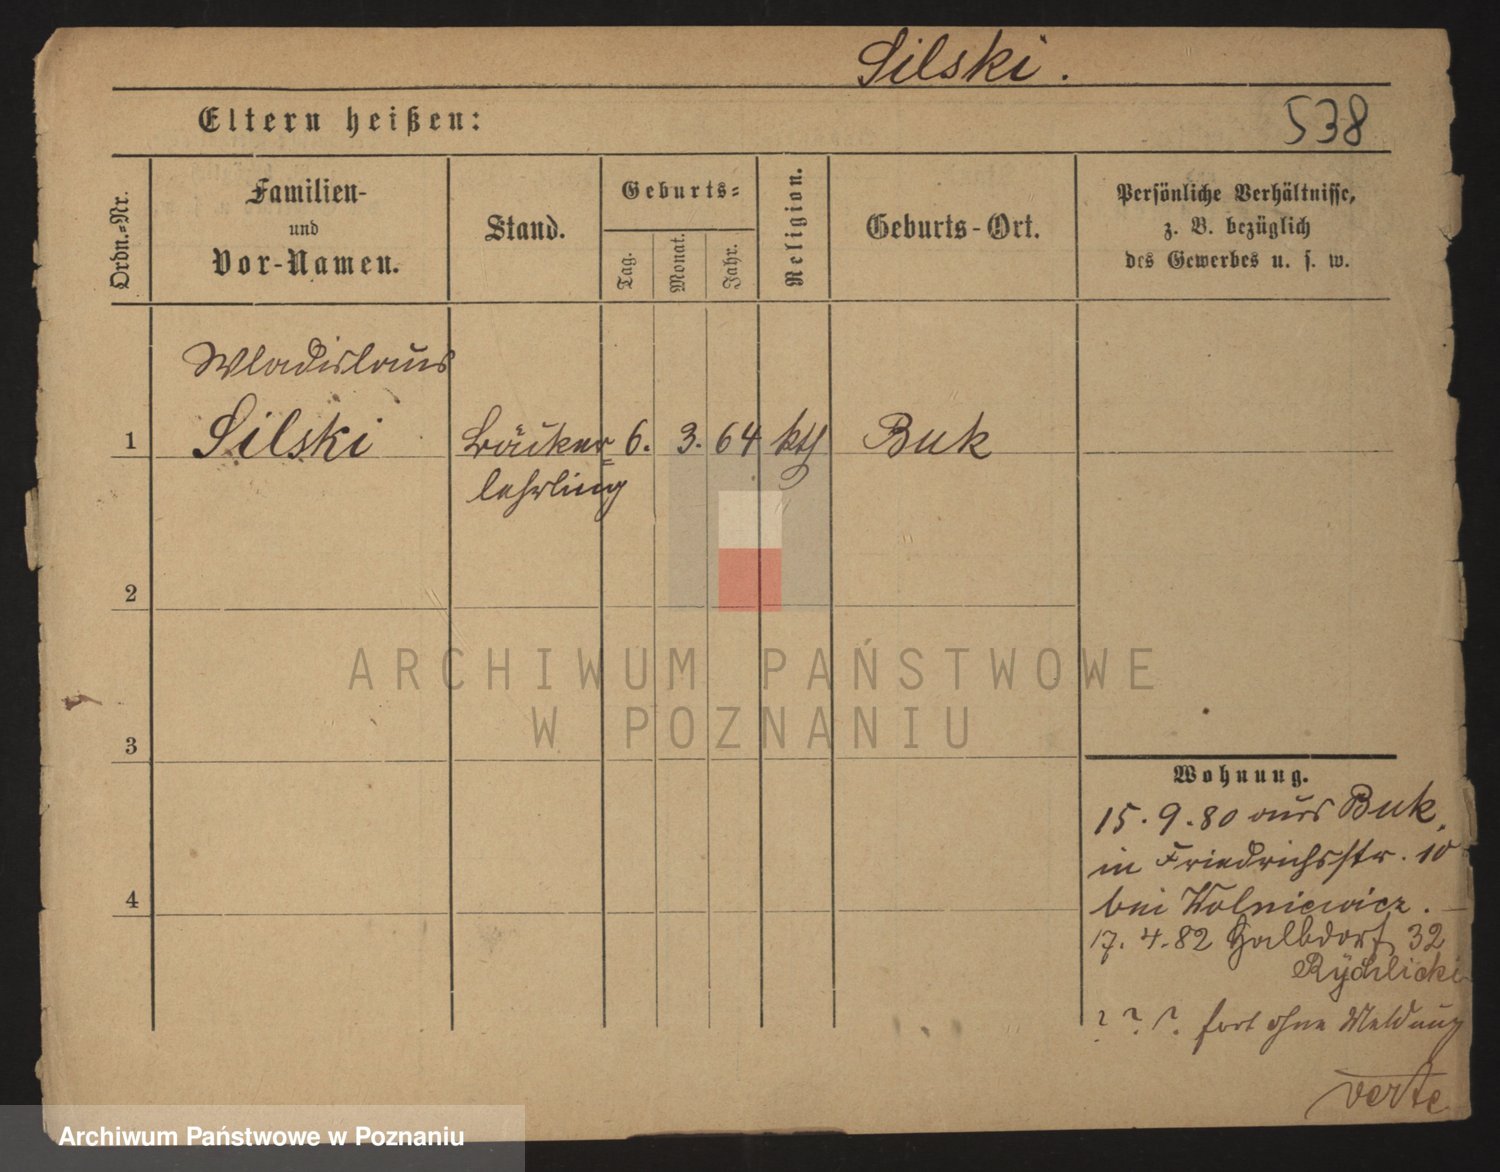 Silski.
Eltern heißen:
538
Ordn.-Nr.
Familien-
und
Vor-Namen.
Stand.
Geburts-
Tag.
Monat.
Jahr.
Religion.
Geburts-Ort.
Persönliche Verhältnisse,
z. B. bezüglich
des Gewerbes u. s. w.
Wladislaus
1 Silski Bäcker= 6. 3. 64 kth Buk
lehrling
2
ARCHIWUM PAŃSTWOWE
W POZNANIU
3
Wohnung.
15.9.80 aus Buk,
in Friedrichsstr. 10
bei Wolniewicz.
4
17.4.82 Halbdorf 32
Rychlicki
? ? ? fort ohne Meldung
verte
Archiwum Państwowe w Poznaniu